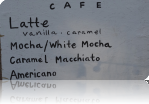 CAFE
Latte
vanilla · caramel
Mocha/White Mocha
Caramel Macchiato
Americano